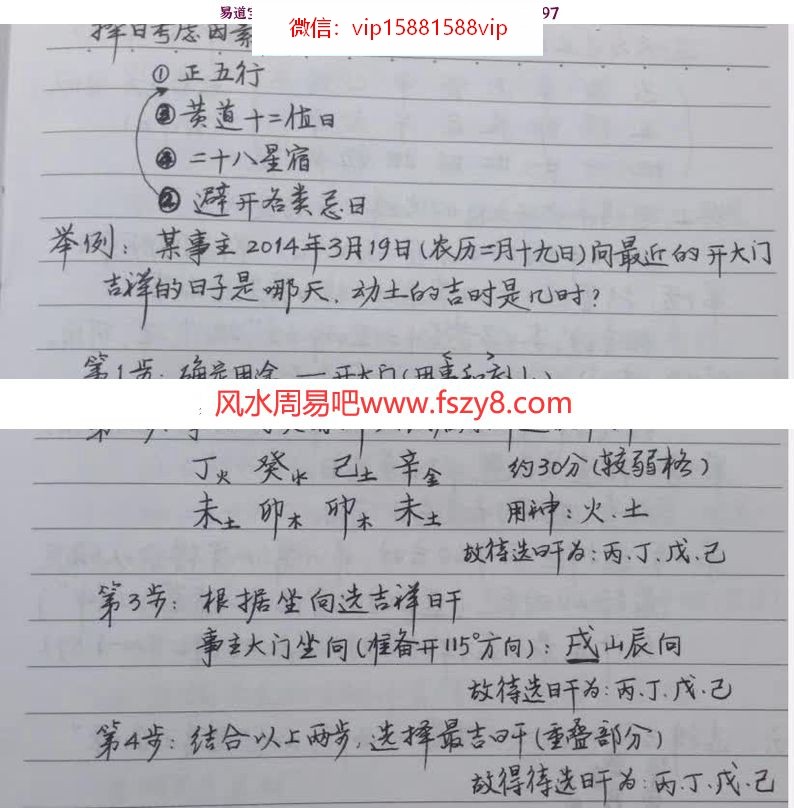 易道宝 97
微信：vip15881588vip
择日考虑因素
① 正五行
③ 黄道十二值日
④ 二十八星宿
② 避开各类忌日
举例：某事主2014年3月19日(农历二月十九日)问最近的开大门
吉祥的日子是哪天，动土的吉时是几时？
第1步：确定用途 — 开大门(用事和 )
风水周易吧www.fszy8.com
丁火 癸水 己土 辛金 约30分(较弱格)
未土 卯木 卯木 未土 用神：火、土
故待选日干为：丙、丁、戊、己
第3步：根据坐向选吉祥日干
事主大门坐向(准备开115°方向)：戌山辰向
故待选日干为：丙、丁、戊、己
第4步：结合以上两步，选择最吉日干(重叠部分)
故得待选日干为：丙、丁、戊、己